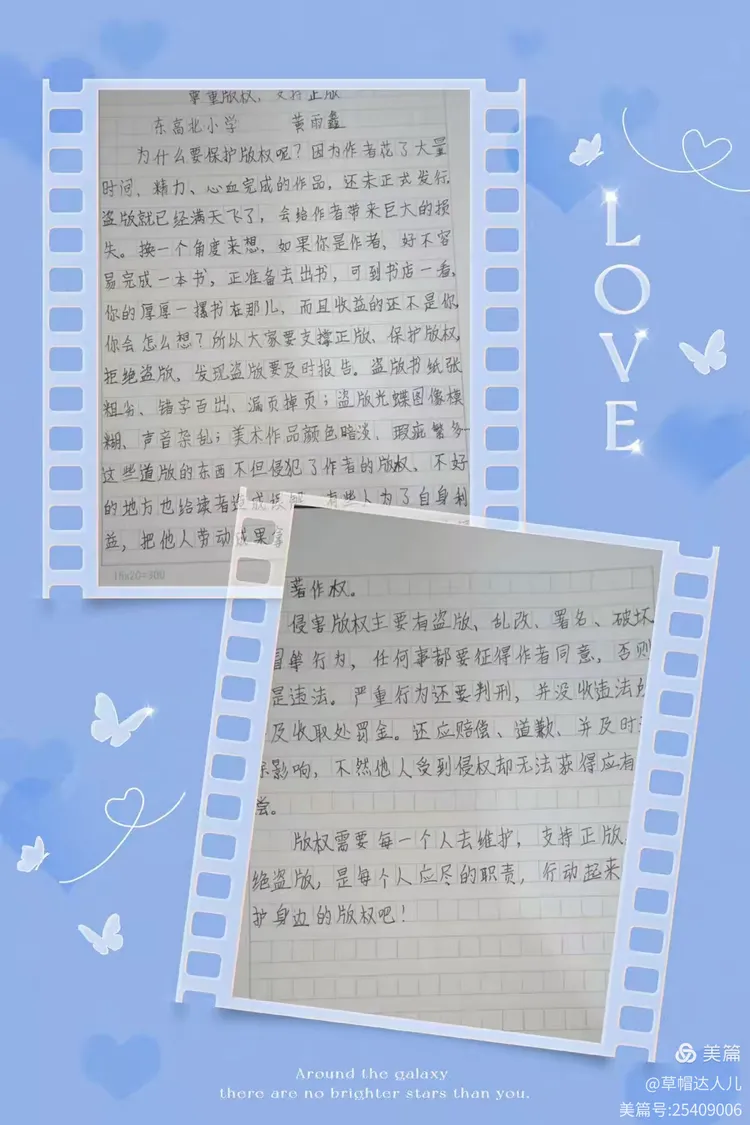 尊重版权，支持正版
东高北小学 黄雨鑫
为什么要保护版权呢？因为作者花了大量
时间、精力、心血完成的作品，还未正式发行，
盗版就已经满天飞了，会给作者带来巨大的损
失。换一个角度来想，如果你是作者，好不容
易完成一本书，正准备去出书，可到书店一看，
你的厚厚一摞书在那儿，而且收益的还不是你，
你会怎么想？所以大家要支撑正版、保护版权，
拒绝盗版、发现盗版要及时报告。盗版书纸张
粗劣、错字百出、漏页掉页；盗版光蝶图像模
糊、声音杂乱；美术作品颜色暗淡、瑕疵繁多
这些道版的东西不但侵犯了作者的版权、不好
的地方也给读者造成误解。有些人为了自身利
益，把他人劳动成果
18x20=360
LOVE
著作权。
侵害版权主要有盗版、乱改、署名、破坏
单行为，任何事都要征得作者同意，否则
是违法。严重行为还要判刑，并没收违法
及收取处罚金。还应赔偿、道歉、并及时
影响，不然他人受到侵权却无法获得应有
偿。
版权需要每一个人去维护，支持正版
绝盗版，是每个人应尽的职责，行动起来
护身边的版权吧！
Around the galaxy
there are no brighter stars than you.
美篇
@草帽达人儿
美篇号:25409006